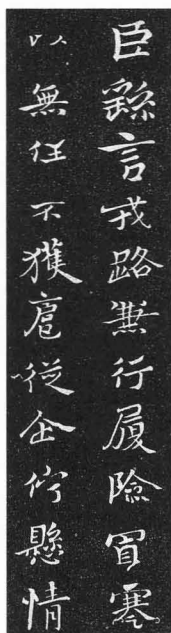 臣繇言戎路兼行履險冒寒
以無任不獲扈從企佇懸情